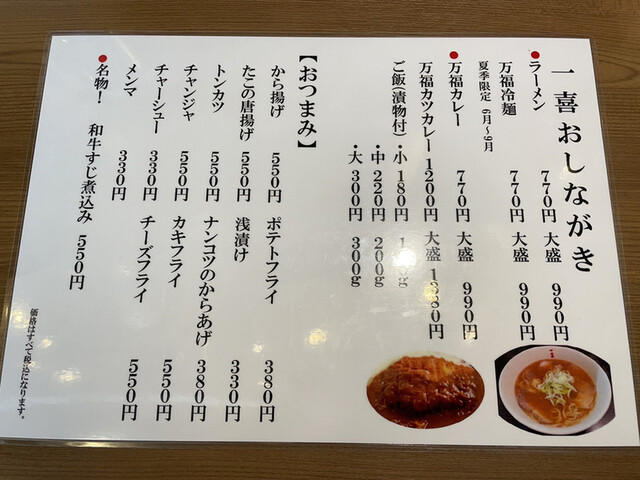 一喜おしながき
●ラーメン 770円 大盛 990円
万福冷麺 770円 大盛 990円
夏季限定 6月～9月
●万福カレー 770円 大盛 990円
万福カツカレー 1200円 大盛
ご飯(漬物付)・小 180円
・中 220円 200g
・大 300円 300g
【おつまみ】
から揚げ 550円 ポテトフライ 380円
たこの唐揚げ 550円 浅漬け 330円
トンカツ 550円 ナンコツのからあげ 380円
チャンジャ 550円 カキフライ 550円
チャーシュー 330円 チーズフライ 550円
メンマ 330円
●名物！ 和牛すじ煮込み 550円
価格はすべて税込になります。